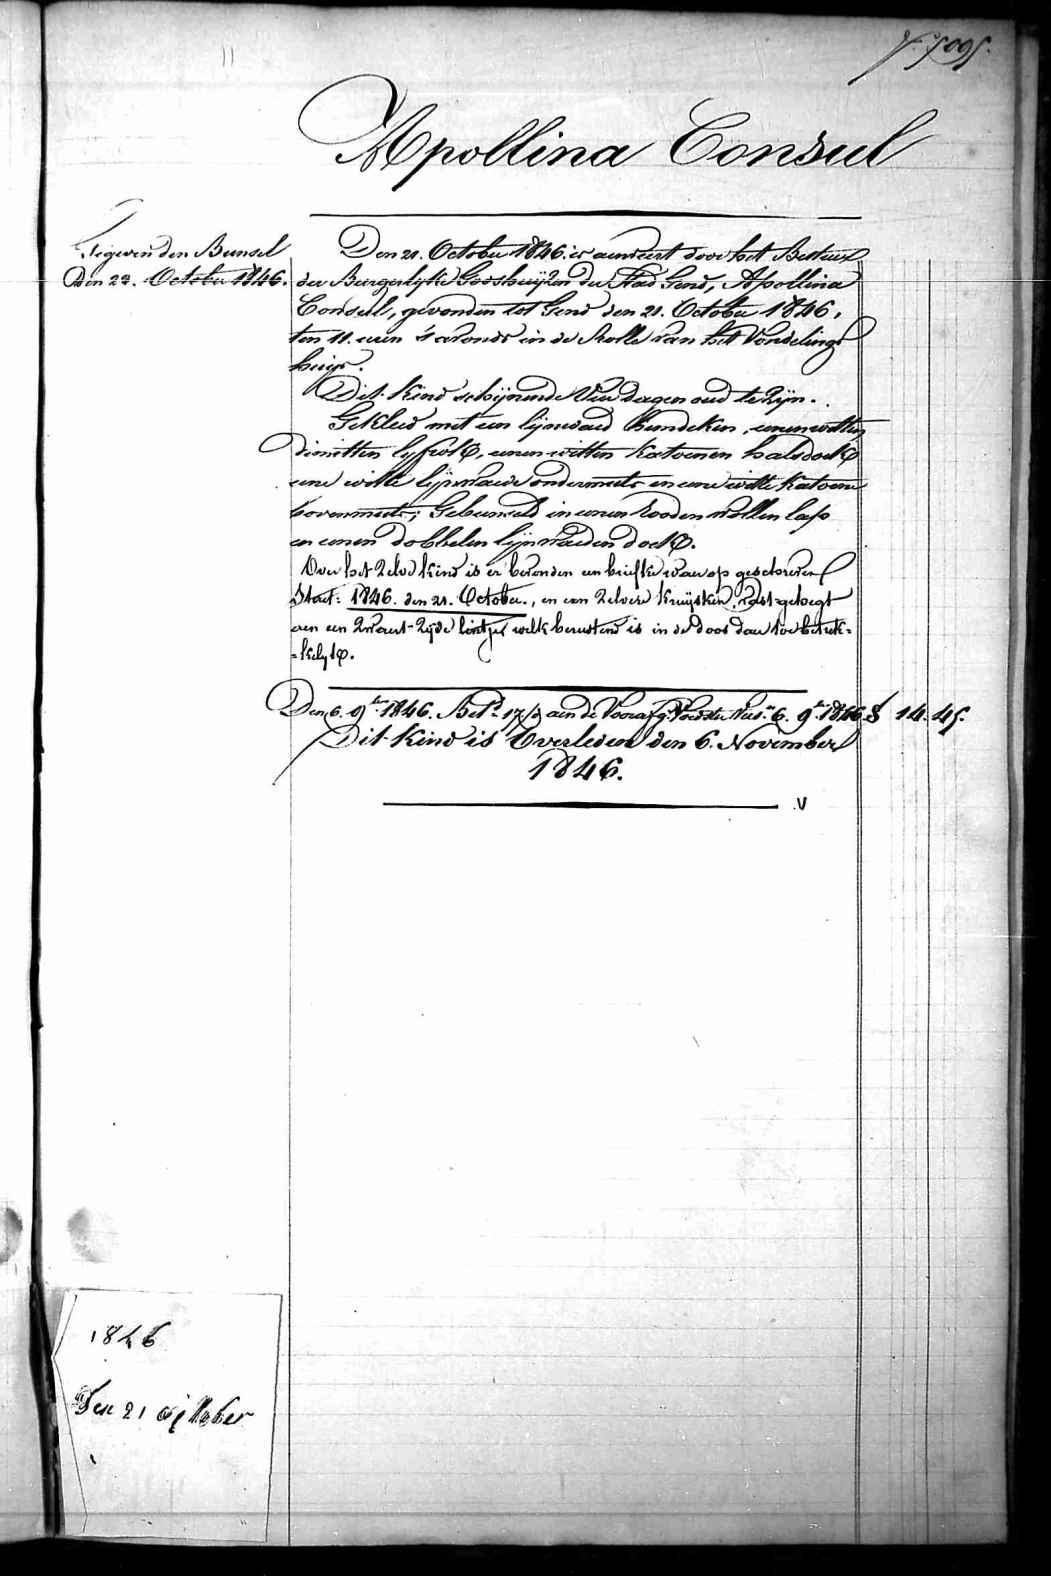 Nº 5095.
Apollina Consul
Gegeven den Bunsel
Den 22. October 1846.
Den 21. October 1846. is aenveert door het Bestuur
der Burgerlyke Godshuijzen der Stad Gend, Apollina
Consul, gevonden tot Gend den 21. October 1846,
ten 11. uren 's avonds in de Rolle van het Vondelings
huijs.
Dit kind schijnende Vier dagen oud te zijn.
Gekleed met een lijnwaed hemdeken, eenen witten
dimitten lyfrok, eenen witten katoenen halsdoek
eene witte lijnwaede ondermuts en eene witte katoene
bovenmuts; Gebunseld in eenen rooden wollen lap
en eenen dobbelen lijnwaeden doek.
Over het zelve kind is er bevonden een briefke waer op geschreven
Staet: 1846. den 21. October., en een zelvere kruijsken, vast gehegt
aen een zwaert-zijde lintjen welk berustend is in de doos daer toe betrek=
=kelyk.
Den 6. 9ber 1846. Betd 17/3 aen de Voorafg: Voedster 6. 9ber 1846 f 14.45.
Dit kind is Overleden den 6. November
1846.
V
1846
Den 21 october